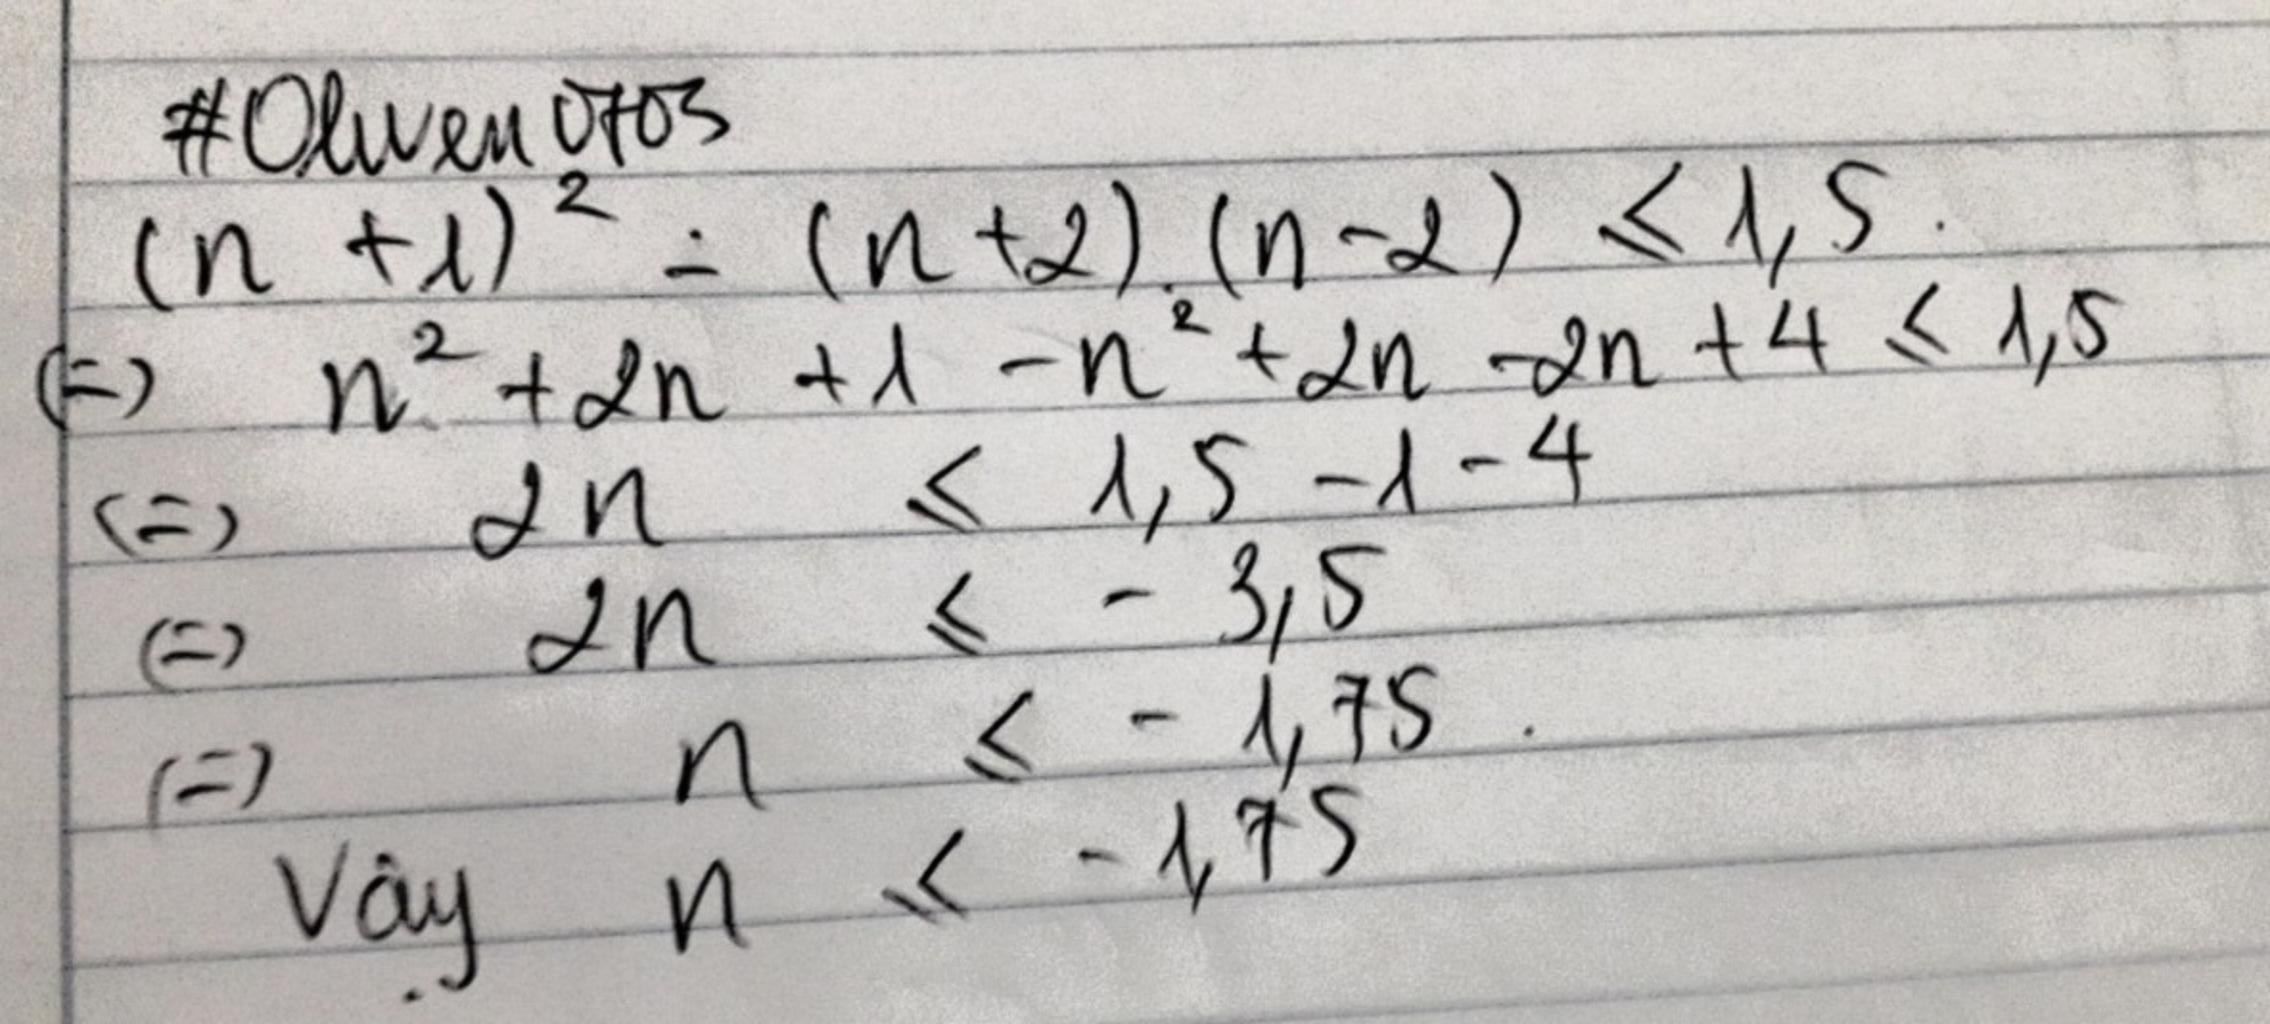 #Oliven0703
(n +1)² - (n+2).(n-2) ≤ 1,5.
(=) n² + 2n + 1 - n² + 2n - 2n + 4 ≤ 1,5
(=) 2n ≤ 1,5 - 1 - 4
(=) 2n ≤ - 3,5
(=) n ≤ - 1,75.
Vậy n ≤ - 1,75